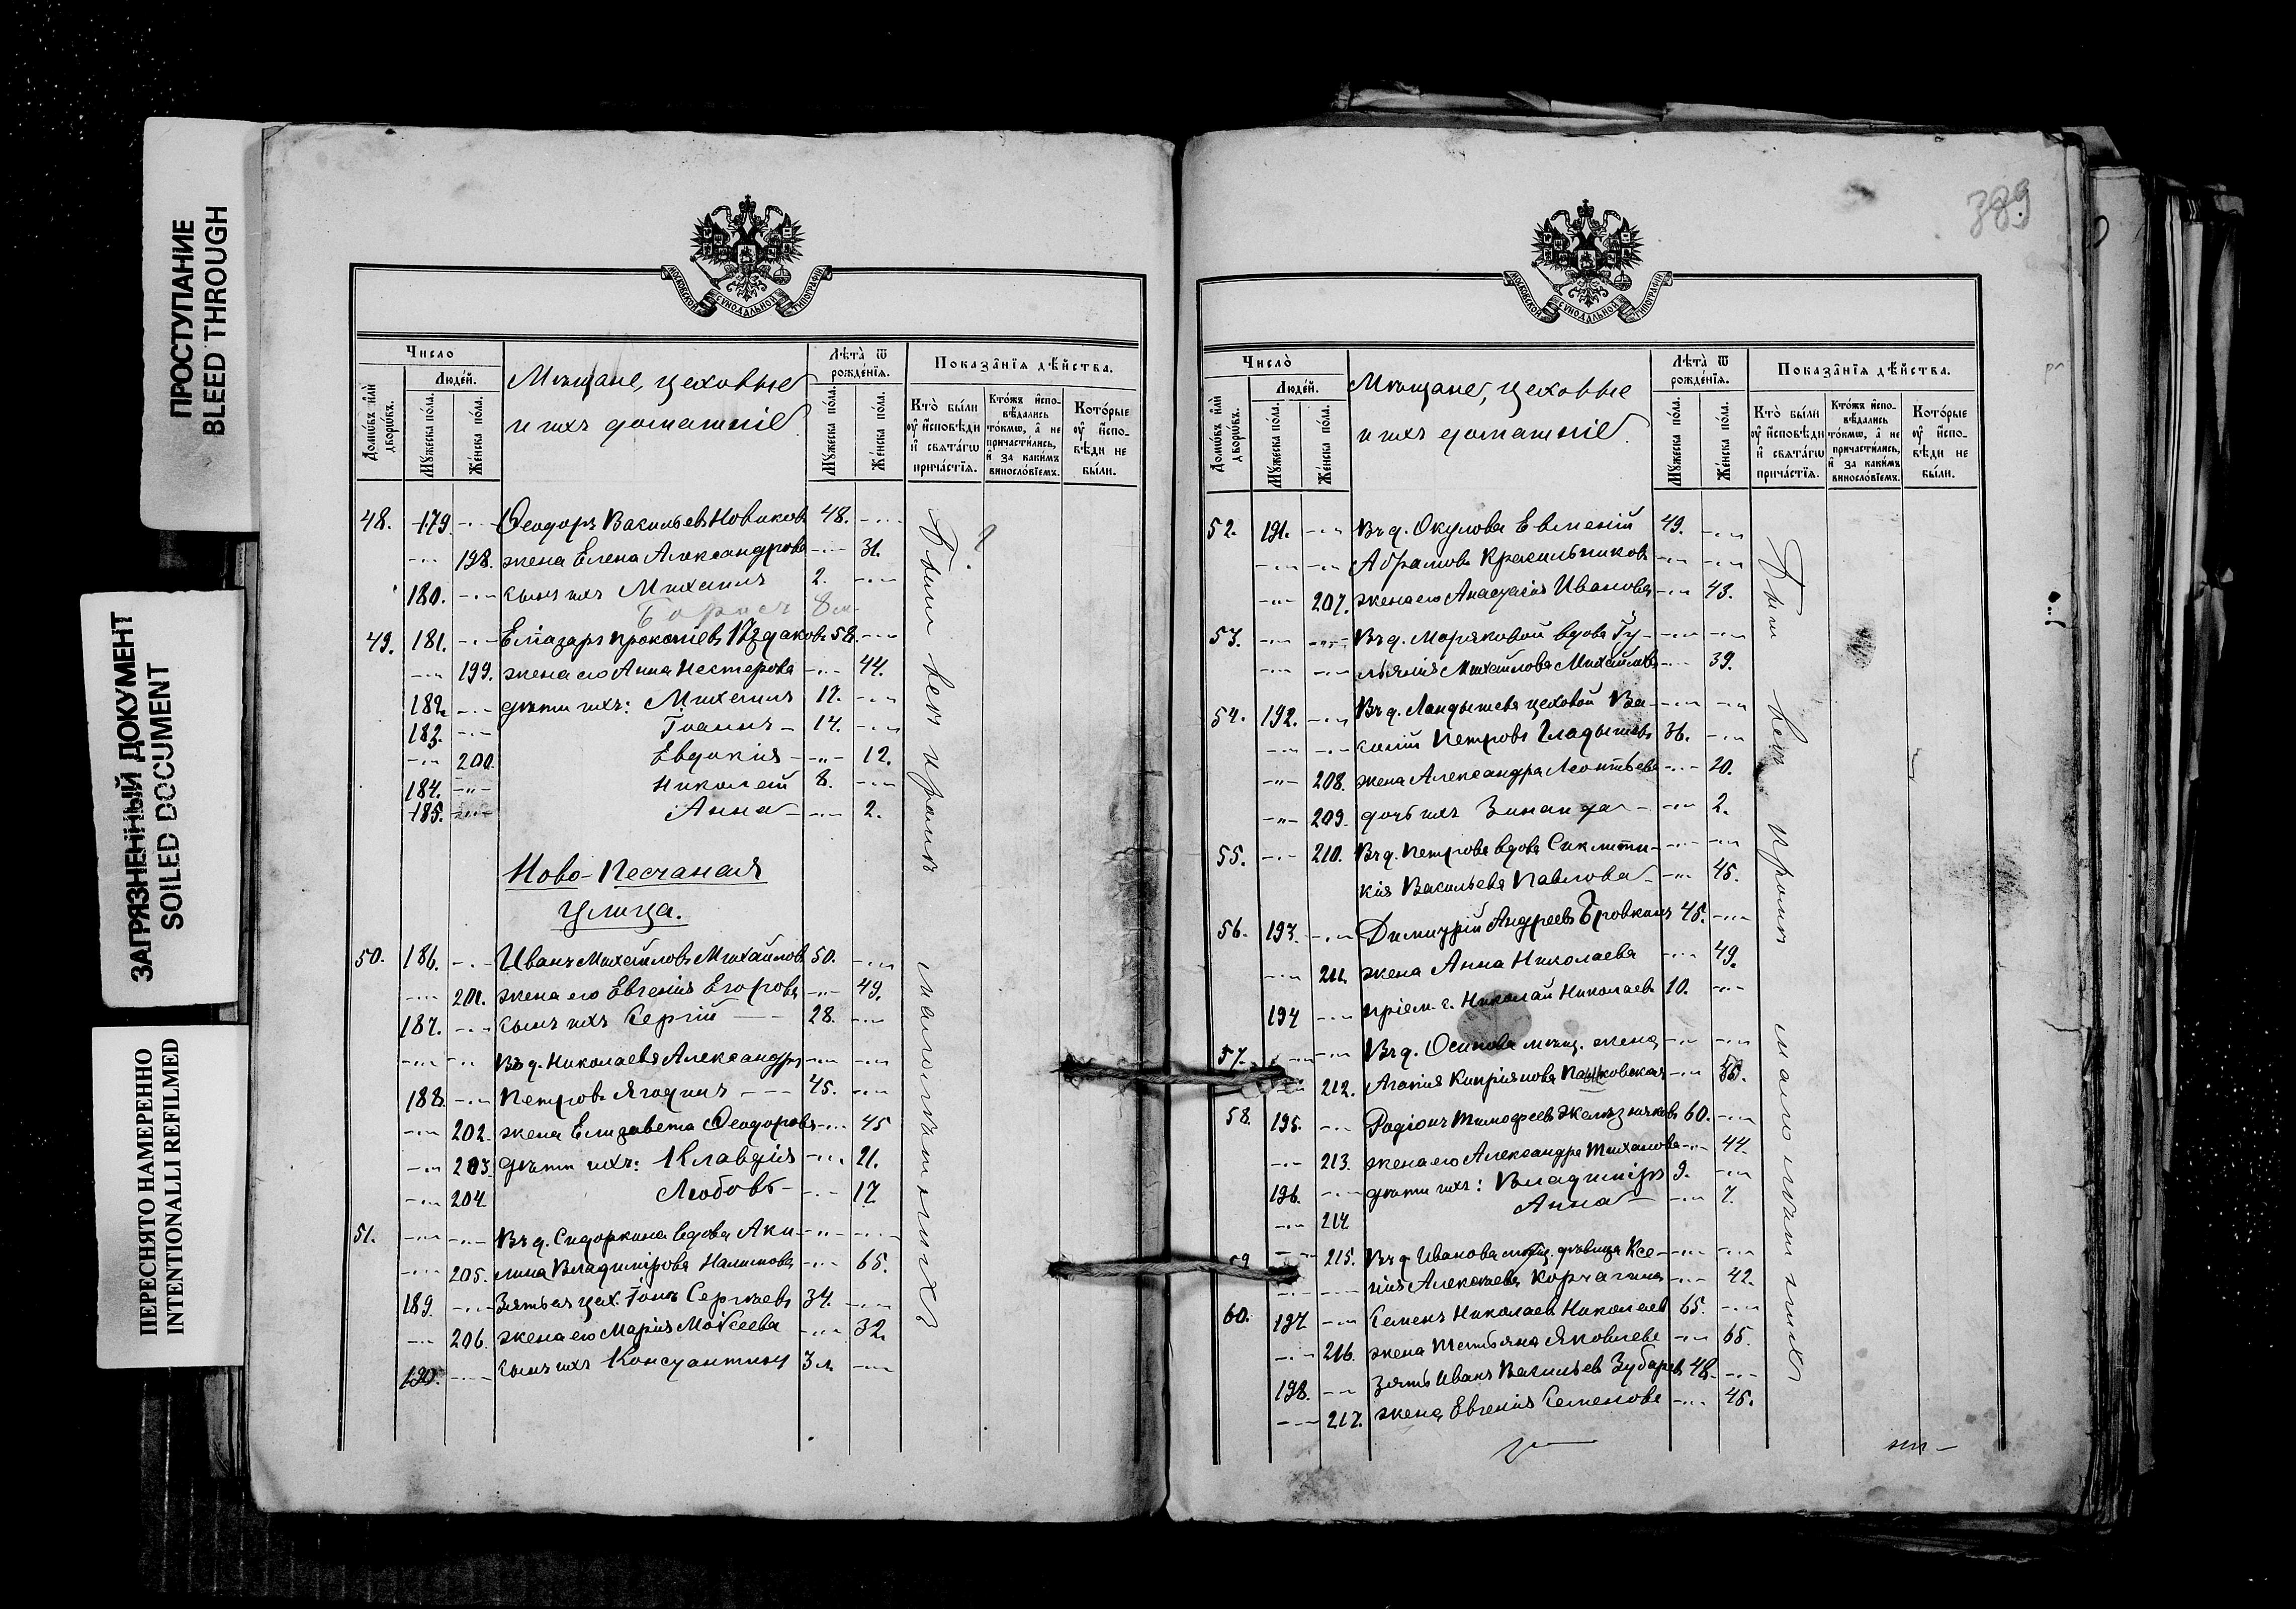 ПРОСТУПАНИЕ
BLEED THROUGH
ЗАГРЯЗНЕННЫЙ ДОКУМЕНТ
SOILED DOCUMENT
ПЕРЕСНЯТО НАМЕРЕННО
INTENTIONALLI REFILMED
МОСКОВСКОЙ СѴНОДАЛЬНОЙ ТИПОГРАФІИ
Число
Людей.
Домѡвъ или дворѡвъ.
Мужеска пола.
Женска пола.
Мѣщане, цеховые
и ихъ домашніе
Лѣта ѿ рожденія.
Мужеска пола.
Женска пола.
Показанія дѣйства.
Кто были у исповѣди и свѧтагѡ причастія.
Ктожъ исповѣдались токмѡ, а не причастились, и за какимъ винословіемъ.
Которые у исповѣди не были.
48. 179. -"- Ѳеодоръ Васильевъ Новиковъ 48. -"-
-"- 198. жена Елена Александрова -"- 31.
180. -"- сынъ ихъ Михаилъ 2. -"-
Борисъ 8 м
49. 181. -"- Елiазаръ Прокопiевъ 58. -"-
-"- 199. жена его Анна Нестерова -"- 44.
182. -"- дѣти ихъ: Михаилъ 17. -"-
183. -"- Іоаннъ - 14. -"-
-"- 200. Евдокія -"- 12.
184. -"- Николай 8. -"-
185. -"- Анна -"- 2.
Ново-Песчаная
улица.
50. 186. -"- Иванъ Михайловъ Михайловъ 50. -"-
-"- 201. жена его Евгенія Егорова -"- 49.
187. -"- сынъ ихъ Сергій 28. -"-
-"- -"- Въ д. Николаева Александръ -"- -"-
188. -"- Петровъ Ягодинъ 45. -"-
-"- 202. жена Елизавета Ѳеодорова -"- 45
-"- 203. дѣти ихъ: Клавдія -"- 21.
-"- 204. Любовь -"- 17
51. -"- -"- Въ д. Сидоркина вдова Аки- -"- -"-
-"- 205. лина Владимірова -"- 65.
189. -"- Зять ея цех. Іона Сергѣевъ 34. -"-
-"- 206. жена его Марія Моѵсеева -"- 32.
190. -"- сынъ ихъ Константинъ 3 м -"-
Были всѣ кромѣ малолѣтнихъ
389
МОСКОВСКОЙ СѴНОДАЛЬНОЙ ТИПОГРАФІИ
Число
Людей.
Домѡвъ или дворѡвъ.
Мужеска пола.
Женска пола.
Мѣщане, цеховые
и ихъ домашніе.
Лѣта ѿ рожденія.
Мужеска пола.
Женска пола.
Показанія дѣйства.
Кто были у исповѣди и свѧтагѡ причастія.
Ктожъ исповѣдались токмѡ, а не причастились, и за какимъ винословіемъ.
Которые у исповѣди не были.
52. 191. -"- Въ д. Окулова Евмений 49. -"-
-"- -"- Абрамовъ Красильниковъ -"- -"-
-"- 207. жена его Анастасія Иванова -"- 43.
53. -"- -"- Въ д. Моряковой вдова Іу- -"- -"-
-"- -"- льянія Михайлова Михайлова -"- 39.
54. 192. -"- Въ д. Ландышева цеховой Ва- -"- -"-
-"- -"- силій Петровъ Гладышевъ 36. -"-
-"- 208. жена Александра Леонтьева -"- 20.
-"- 209. дочь ихъ Зинаида -"- 2.
55. -"- 210. Въ д. Петрова вдова Синклити- -"- -"-
кія Васильева Павлова -"- 45.
56. 193. -"- Димитрій Андреевъ Бровкинъ 45. -"-
-"- 211. жена Анна Николаева -"- 49.
194 -"- пріем. с. Николай Николаевъ 10. -"-
57. -"- -"- Въ д. Осипова мѣщ. жена -"- -"-
-"- 212. Агапія Кипріянова -"- 56.
58. 195. -"- Родіонъ Тимофеевъ Желѣзняковъ 60. -"-
-"- 213. жена его Александра Тиханова -"- 44.
196. -"- дѣти ихъ: Владиміръ 9. -"-
-"- 214 Анна -"- 7.
59 -"- 215. Въ д. Иванова мѣщ. дѣвица Ксе- -"- -"-
-"- -"- нія Алексѣева Корчагина -"- 42.
60. 197 -"- Семенъ Николаевъ Николаевъ 65. -"-
-"- 216. жена Татьяна Яковлева -"- 65.
198. -"- Зять Иванъ Васильевъ Зубаревъ 48. -"-
-"- 217. жена Евгенія Семенова -"- 45.
Были всѣ кромѣ малолѣтнихъ